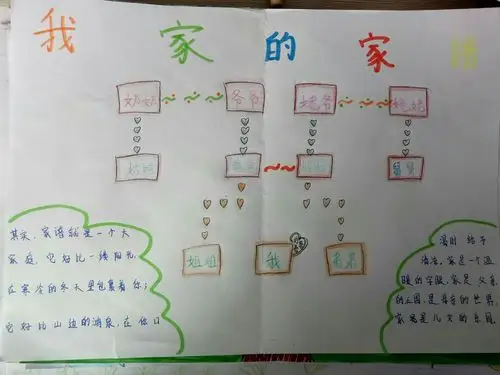 我家的家谱
奶奶 爷爷 姥爷 姥姥
姑姑 爸爸 妈妈 舅舅
姐姐 我 弟弟
其实,家谱就是一个大
家庭,它好比一缕阳光,
在寒冷的冬天里包裹着你;
它好比山边的清泉,在你口
渴时给予
清凉,家是一个温
暖的字眼,家是父亲
的王国,是母亲的世界,
家更是儿女的乐园